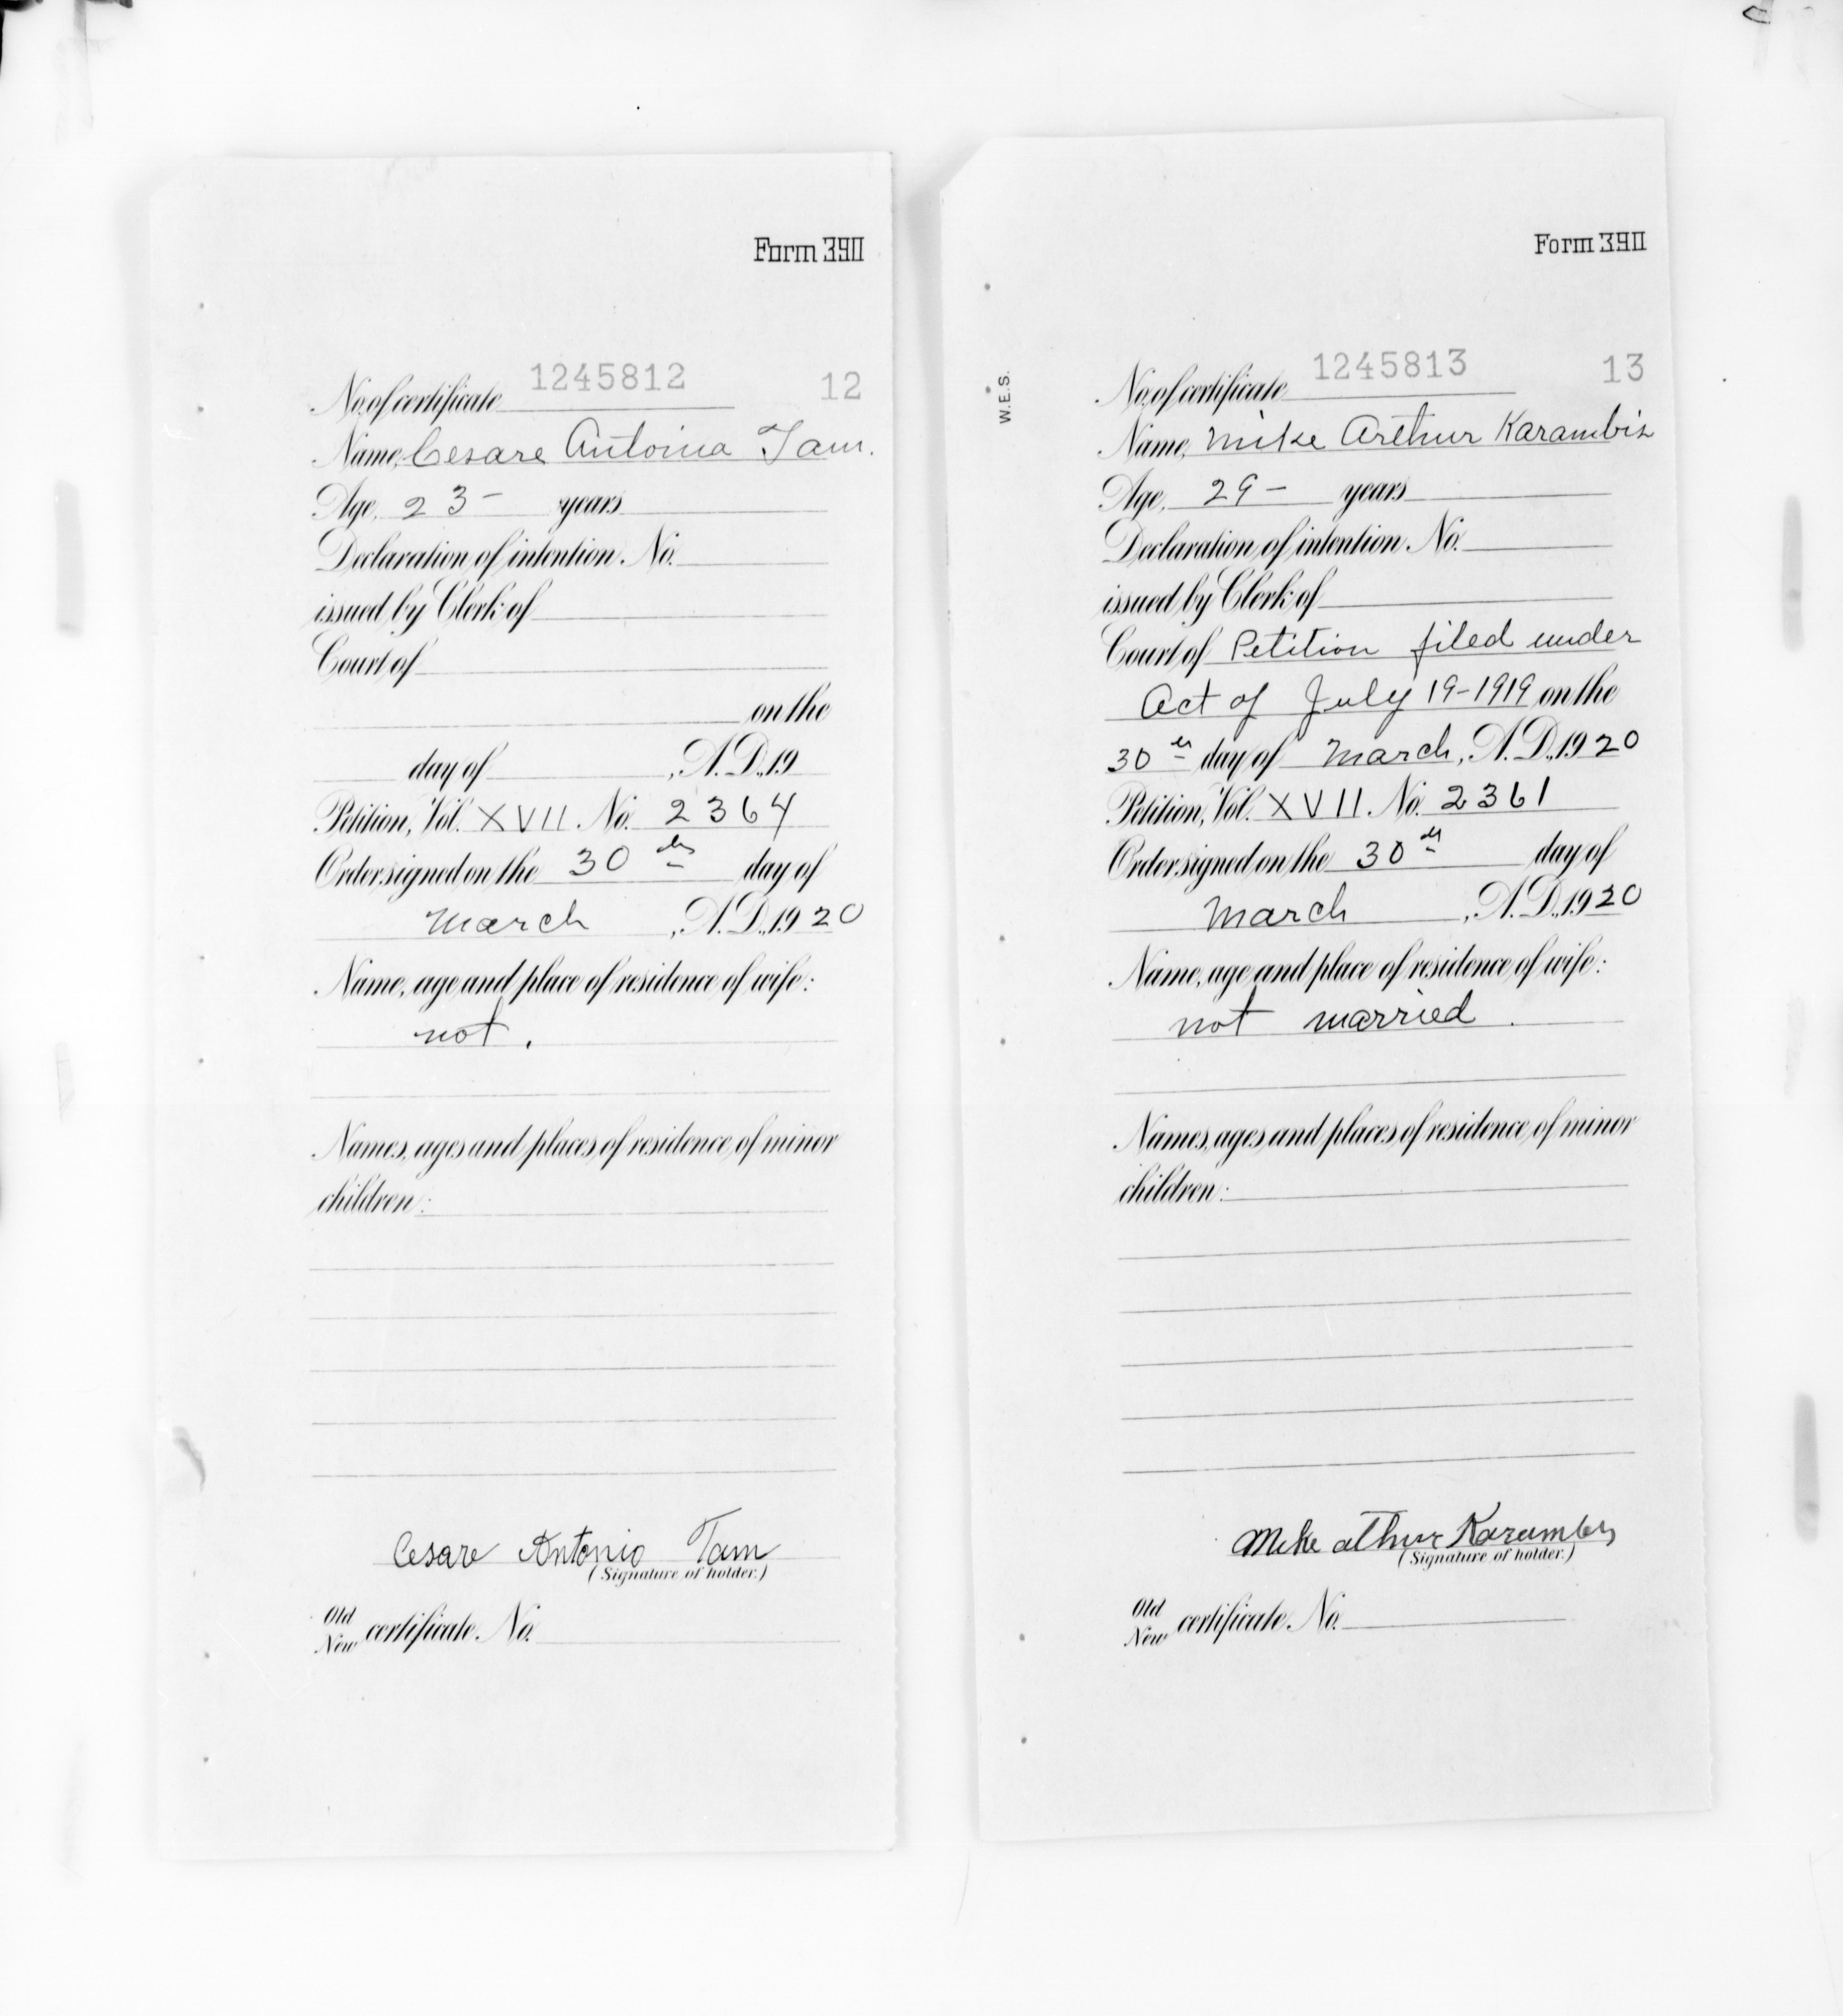 Form 390
No. of certificate 1245812 12
Name, Cesare Antonia Tam.
Age, 23 - years
Declaration of intention No.
issued by Clerk of
Court of
on the
day of , A.D., 19
Petition, Vol. XVII No. 2364
Order signed on the 30th day of
March , A.D., 1920
Name, age and place of residence of wife:
not.
Names, ages and places of residence of minor
children:
Cesare Antonio Tam
(Signature of holder.)
Old
New certificate No.
Form 390
W.E.S.
No. of certificate 1245813 13
Name, Mike Arthur Karambis
Age, 29 - years
Declaration of intention No.
issued by Clerk of
Court of Petition filed under
Act of July 19-1919 on the
30th day of March, A.D., 1920
Petition, Vol. XVII No. 2361
Order signed on the 30th day of
March , A.D., 1920
Name, age and place of residence of wife:
not married.
Names, ages and places of residence of minor
children:
Mike athur Karambis
(Signature of holder.)
Old
New certificate No.